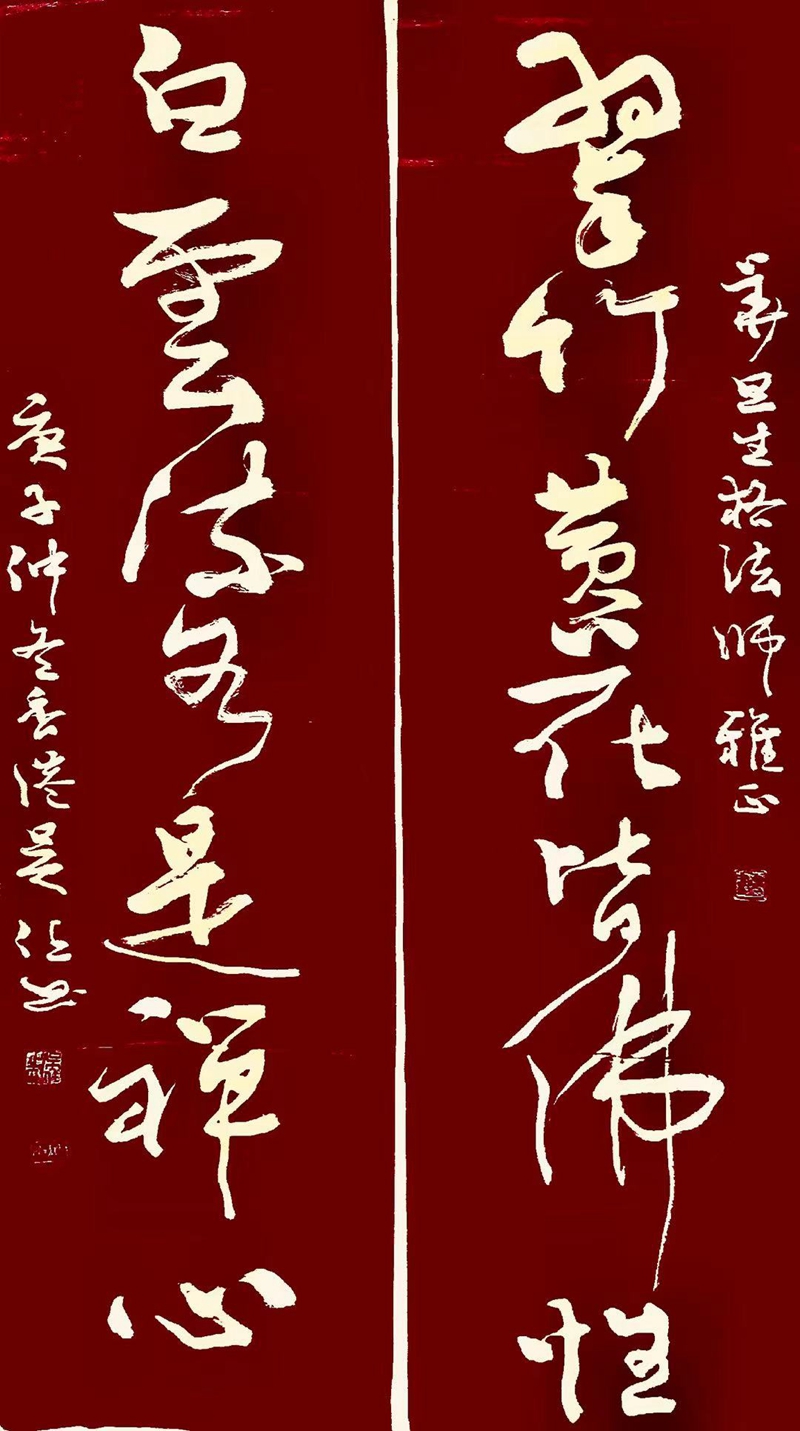 華旦生格法師雅正
翠竹黃花皆佛性
白雲流水是禪心
庚子仲冬香港吳書